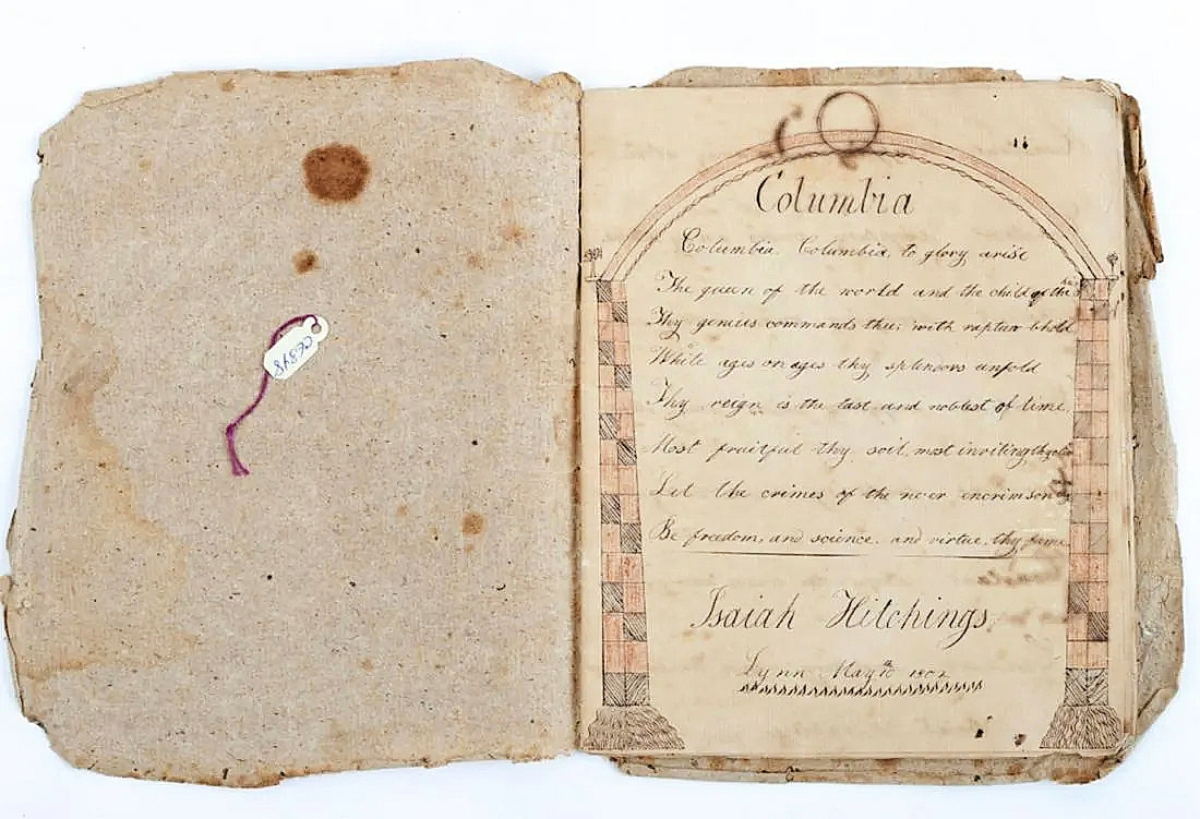 CC848
Columbia
Columbia. Columbia, to glory arise
The queen of the world and the child of the
Thy genius commands thee; with rapture behold
While ages on ages thy splendors unfold
Thy reign is the last and noblest of time,
Most fruitful thy soil, most inviting thy
Let the crimes of the ne'er encrimson
Be freedom, and science, and virtue, thy fame
Isaiah Hitchings
Lynn May 1802